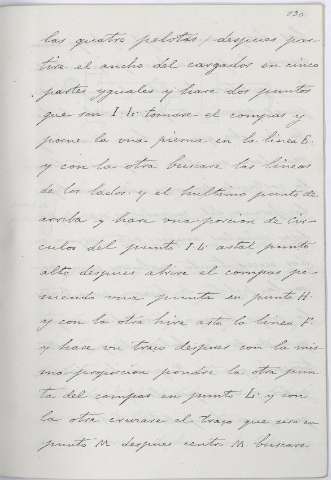 130
las quatro pelotas / despues par
tire el ancho del cargador en cinco
partes yguales y hare dos puntos
que son I. L: tomare el compas y
porne la vna pierna en la linea E:
y con la otra buscare las lineas
de los lados: y el hultimo punto de
arriba y hare vna porcion de cir
culos del punto I. L: asta el punto
alto despues abrire el compas po
niendo vna punta en punto H.
y con la otra hire asta la linea F:
y hare vn trazo despues con la mis
ma proporcion pondre la otra pun
ta del compas en punto L: y con
la otra cruzare el trazo que sera en
punto M despues centro M buscare